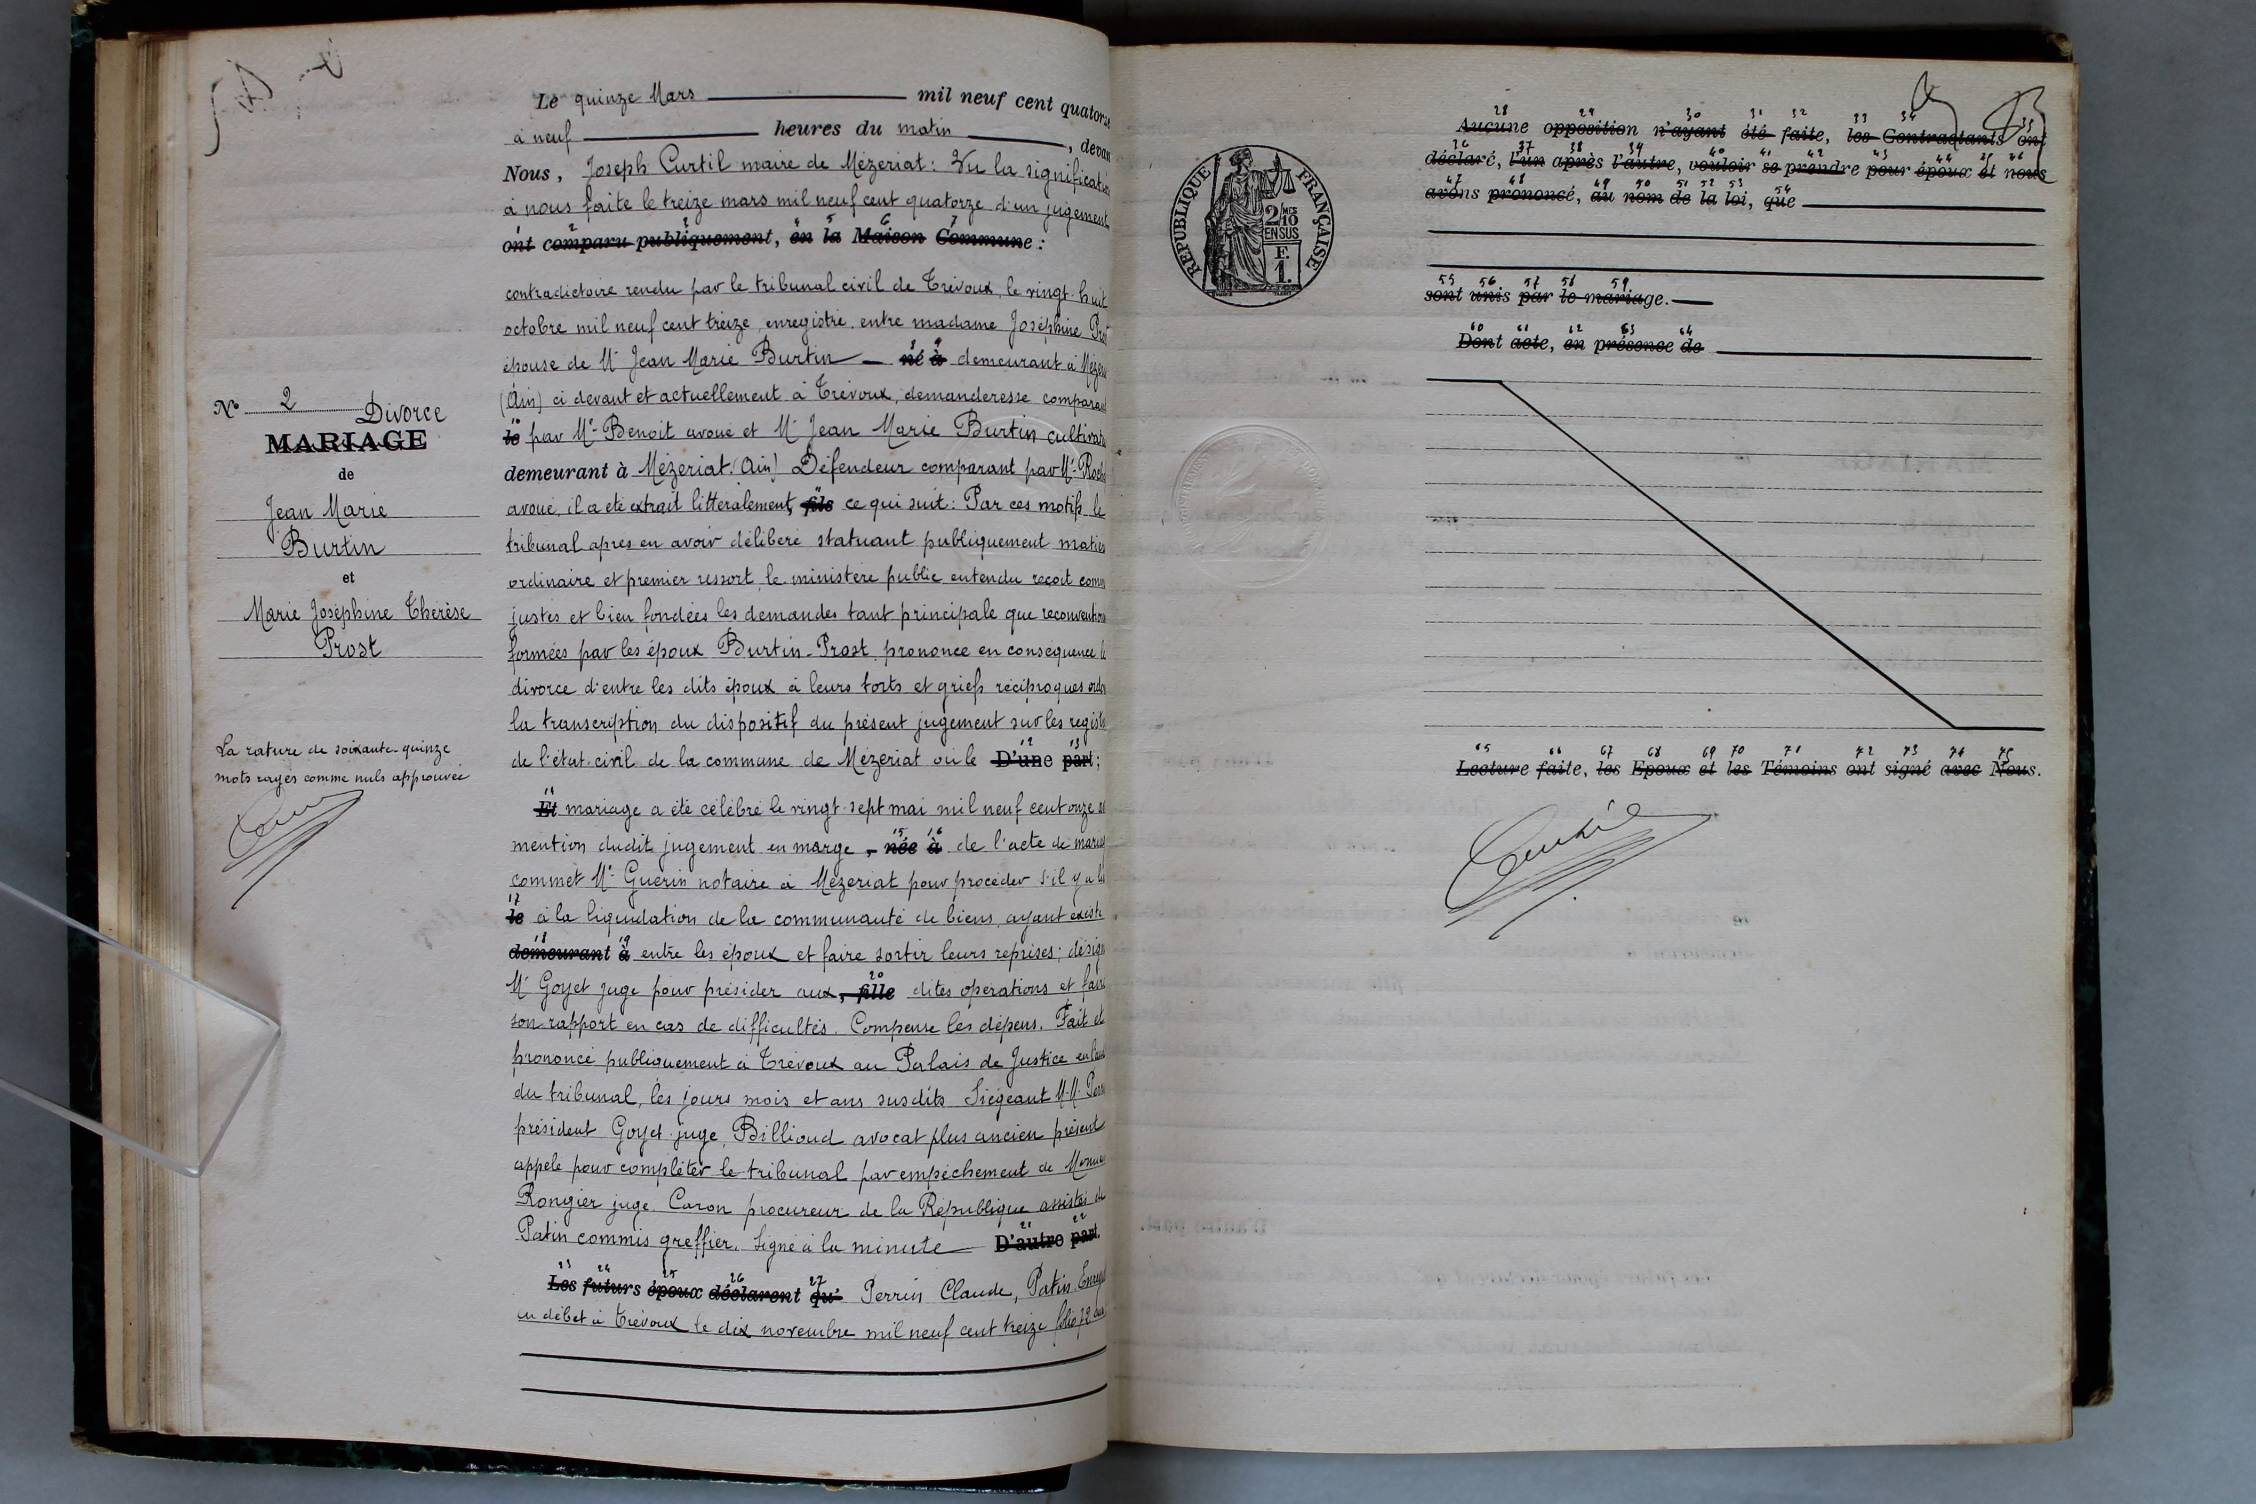 Le quinze Mars mil neuf cent quatorze
à neuf heures du matin, devan
Nous, Joseph Curtil maire de Mézeriat : Vu la significatio
à nous faite le treize mars mil neuf cent quatorze d'un jugement
1 2 3 4 5 6 7
ont comparu publiquement, en la Maison Commune :
contradictoire rendu par le tribunal civil de Trévoux, le vingt-huit
octobre mil neuf cent treize, enregistré, entre madame Joséphine Pros
épouse de Mr Jean Marie Burtin — né à demeurant à Mézer
(Ain) ci devant et actuellement à Trévoux, demanderesse comparan
le par Me Benoit avoué et Mr Jean Marie Burtin cultivate
demeurant à Mézeriat (Ain) Défendeur comparant par Me Roche
avoué, il a été extrait littéralement, fils ce qui suit : Par ces motifs le
tribunal après en avoir délibéré statuant publiquement matière
ordinaire et premier ressort, le ministère public entendu reçoit comm
justes et bien fondées les demandes tant principale que reconvention
formées par les époux Burtin-Prost, prononce en conséquence le
divorce d'entre les dits époux à leurs torts et griefs réciproques ordon
la transcription du dispositif du présent jugement sur les registr
de l'état-civil de la commune de Mézeriat où le D'une part ;
Et mariage a été célébré le vingt-sept mai mil neuf cent onze et
mention dudit jugement en marge, née à de l'acte de mariag
commet Me Guérin notaire à Mézeriat pour procéder s'il y a lie
le à la liquidation de la communauté de biens, ayant existé
demeurant à entre les époux et faire sortir leurs reprises ; désign
Mr Goyet juge pour présider aux, fille dites opérations et faire
son rapport en cas de difficultés. Compense les dépens. Fait et
prononcé publiquement à Trévoux au Palais de Justice en l'aud
du tribunal, les jours mois et ans susdits Siégeant M.M. Perr
président Goyet juge, Billioud avocat plus ancien présent
appelé pour compléter le tribunal par empêchement de
Rongier juge. Caron procureur de la République assistés de
Patin commis greffier. Signé à la minute D'autre part.
23 24 25 26 27
Les futurs époux déclarent qu' Perrin Claude, Patin. Enreg
en débet à Trévoux le dix novembre mil neuf cent treize folio 72
N° 2 Divorce
MARIAGE
de
Jean Marie
Burtin
et
Marie Joséphine Thérèse
Prost
La rature de soixante-quinze
mots rayés comme nuls approuvée
RÉPUBLIQUE FRANÇAISE
2/10 MES
EN SUS
F.
1.
28 29 30 31 32 33 34 35
Aucune opposition n'ayant été faite, les Contractants ont
36 37 38 39 40 41 42 43 44 45 46
déclaré, l'un après l'autre, vouloir se prendre pour époux et nous
47 48 49 50 51 52 53 54
avons prononcé, au nom de la loi, que
55 56 57 58 59
sont unis par le mariage.
60 61 62 63 64
Dont acte, en présence de
65 66 67 68 69 70 71 72 73 74 75
Lecture faite, les Epoux et les Témoins ont signé avec Nous.